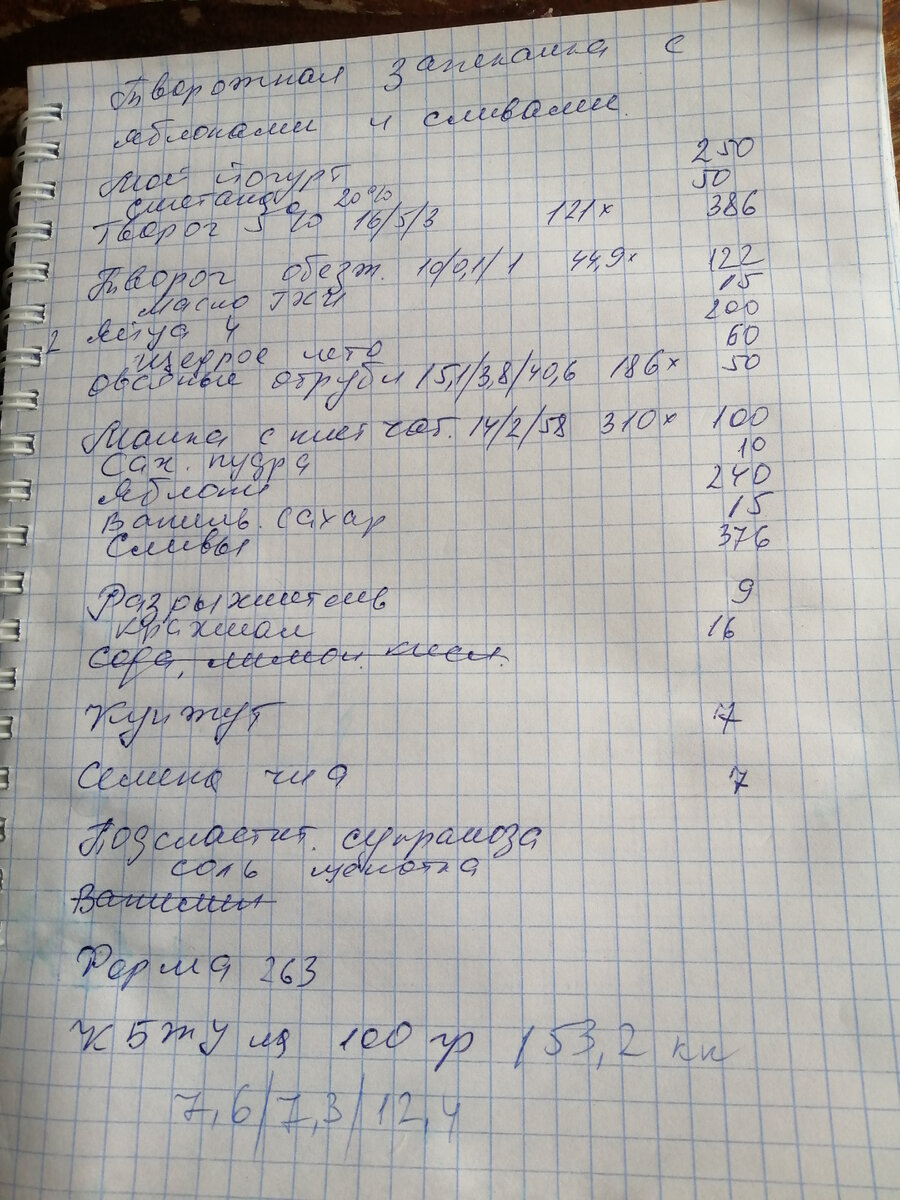 Творожная запеканка с
яблоками и сливами.
Мой йогурт 250
сметана 20% 50
Творог 5% 16/5/3 121х 386
Творог обезж. 10/0,1/1 44,9х 122
масло ГХИ 15
2 Яйца 4 200
щедрое лето 60
Овсяные отруби 15,1/3,8/40,6 186х 50
Манка с клетчат. 14/2/58 310х 100
Сах. пудра 10
Яблоки 240
Ваниль. сахар 15
Сливы 376
Разрыхлитель 9
крахмал 16
Сода, лимон. кисл.
Кунжут 7
Семена чиа 7
Подсластит. сукралоза
соль щепотка
Ванилин
Форма 263
КБЖУ на 100 гр 153,2 кк
7,6/7,3/12,4